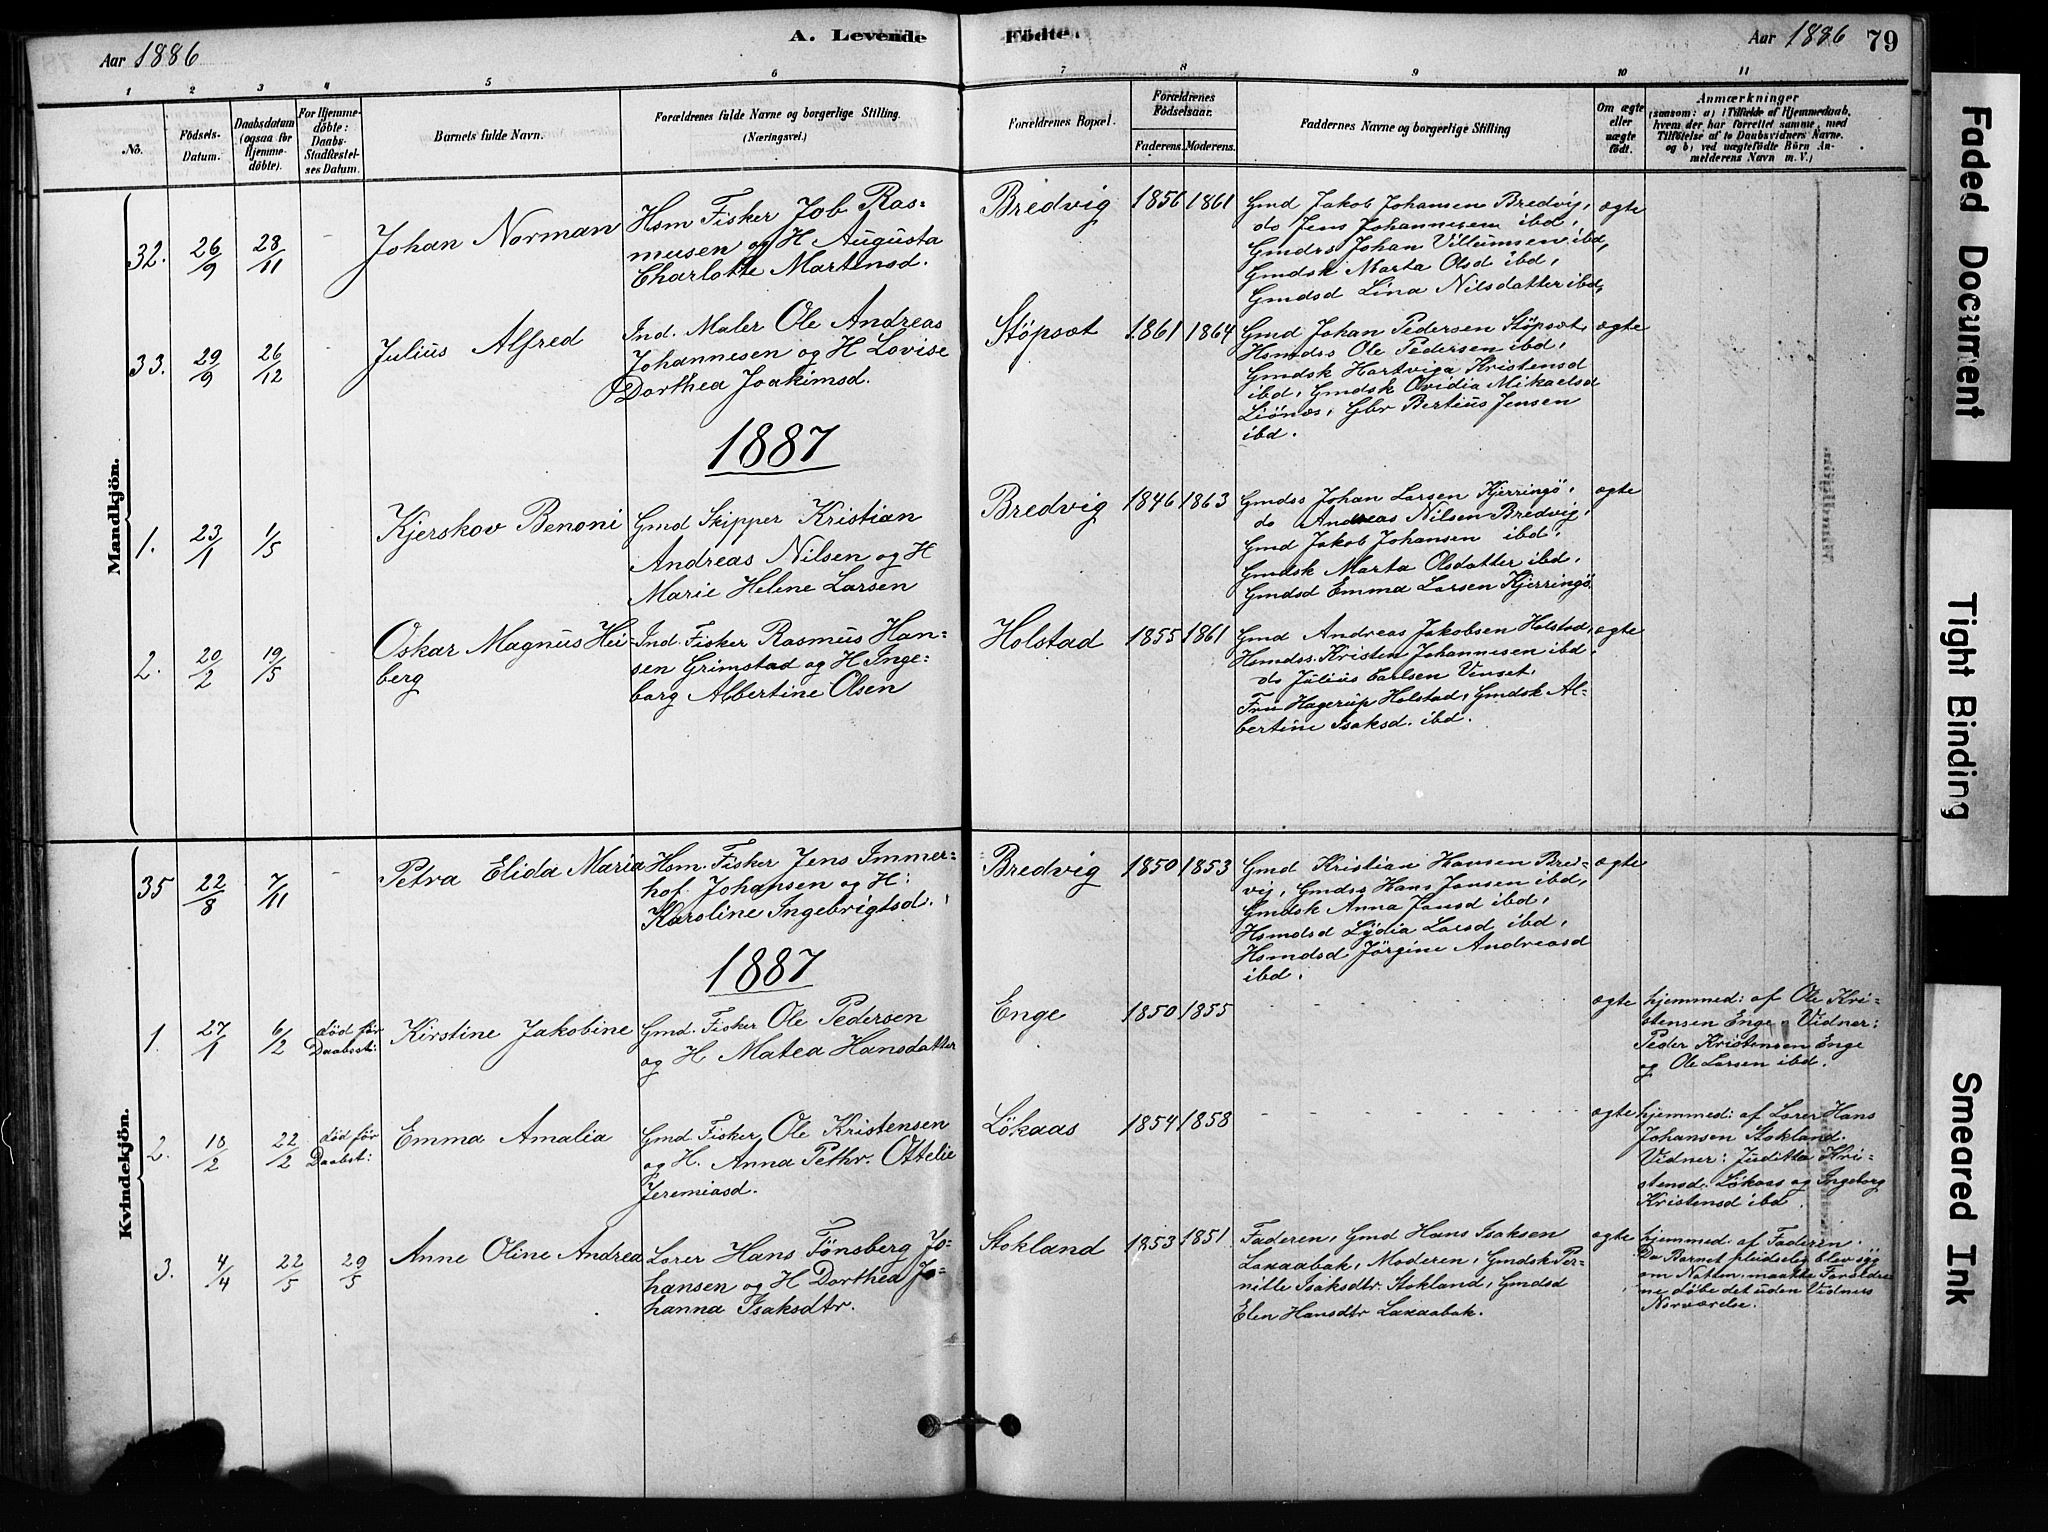 Aar 1886
A. Levende
Födte.
Aar 1886 79
1 2 3 4 5 6 7 8 9 10 11
No.
Födsels-
Datum.
Daabsdatum
(ogsaa for
Hjemme-
döbte).
For Hjemme-
döbte:
Daabs-
Stadfæstel-
ses Datum.
Barnets fulde Navn.
Forældrenes fulde Navne og borgerlige Stilling.
(Næringsvei.)
Forældrenes Bopæl.
Forældrenes
Födselsaar.
Faderens. Moderens.
Faddernes Navne og borgerlige Stilling
Om ægte
eller
uægte
födt.
Anmærkninger
(saasom: a) i Tilfælde af Hjemmedaab,
hvem der har forrettet samme, med
Tilföielse af to Daabsvidners Navne,
og b) ved uægtefödte Börn An-
melderens Navn m. V.)
Mandkjön.
32. 26/9 28/11 - Johan Norman
Hsm Fisker Job Ras-
musen og H Augusta
Charlotte Martinsd.
Bredvig 1856 1861
Gmd Jakob Johansen Bredvig,
do Jens Johannesen ibd,
Gmdss Johan Villumsen ibd,
Gmdsk Marta Olsd ibd,
Gmdsd Lina Nilsdatter ibd,
ægte
33. 29/9 26/12 Julius Alfred
Ind. Maler Ole Andreas
Johannesen og H Lovise
Dorthea Joakimsd.
Støpsæt 1861 1864
Gmd Johan Pedersen Støpsæt,
Hsmdss Ole Pedersen ibd,
Gmdsk Hartviga Kristensd
ibd, Gmdsk Ovidia Mikaelsd
Liönæs, Gbr Bertius Jensen
ibd.
ægte
1887
1. 23/1 1/5 Kjerskov Benoni
Gmd Skipper Kristian
Andreas Nilsen og H
Marie Helene Larsen
Bredvig 1846 1863
Gmdss Johan Larsen Kjerringö,
do Andreas Nilsen Bredvig,
Gmd Jakob Johansen ibd,
Gmdsk Marta Olsdatter ibd,
Gmdsd Emma Larsen Kjerringö
ægte
2. 20/2 19/5 Oskar Magnus Hei-
berg
Ind. Fisker Rasmus Han-
sen Grimstad og H Inge-
borg Albertine Olsen
Holstad 1855 1861
Gmd Andreas Jakobsen Holstad,
Hsmdss. Kristen Johannesen ibd,
do Julius Carlsen Vinset,
Fru Hagerup Holstad, Gmdsk Al-
bertine Isaksd. ibd.
ægte
Kvindekjön.
35 22/8 7/11 - Petra Elida Maria
Hsm. Fisker Jens Immer-
hof. Johansen og H:
Karoline Ingebrigtsd.
Bredvig 1850 1853
Gmd Kristian Hansen Bred-
vig, Gmdss Hans Jansen ibd,
Gmdsk Anna Jansd ibd,
Hsmdsd Lydia Larsd ibd,
Hsmdsd Jörgine Andreasd
ibd.
ægte
1887
1. 27/1 6/2 død før
Daabsst:
Kirstine Jakobine
Gmd. Fisker Ole Pedersen
og H Matea Hansdatter
Enge 1850 1855
ægte
hjemmed: af Ole Kri-
stensen Enge. Vidner:
Peder Kristensen Enge
og Ole Larsen ibd.
2. 18/2 22/2 død før
Daabst:
Emma Amalia
Gmd Fisker Ole Kristensen
og H. Anna Pethr. Ottelie
Jeremiasd.
Lökaas 1854 1858
ægte
hjemmed: af Lærer Hans
Johansen Stokland.
Vidner: Juditta Kri-
stensd. Lökaas og Ingeborg
Kristensd ibd
3. 4/4 22/5 29/5 Anne Oline Andrea
Lærer Hans Tönsberg Jo-
hansen og H Dorthea Jo-
hanna Isaksdtr.
Stokland 1853 1851
Faderen, Gmd Hans Isaksen
Laxaabak, Moderen, Gmdsk Per-
nille Isaksdtr. Stokland, Gmdsd
Elen Hansdtr Laxaabak.
ægte
hjemmed. af Faderen.
Da Barnet pludselig blev syg
om Natten, maatte Forældre-
ne döbe det uden Vidners
Nærværelse.
Faded Document
Tight Binding
Smeared Ink